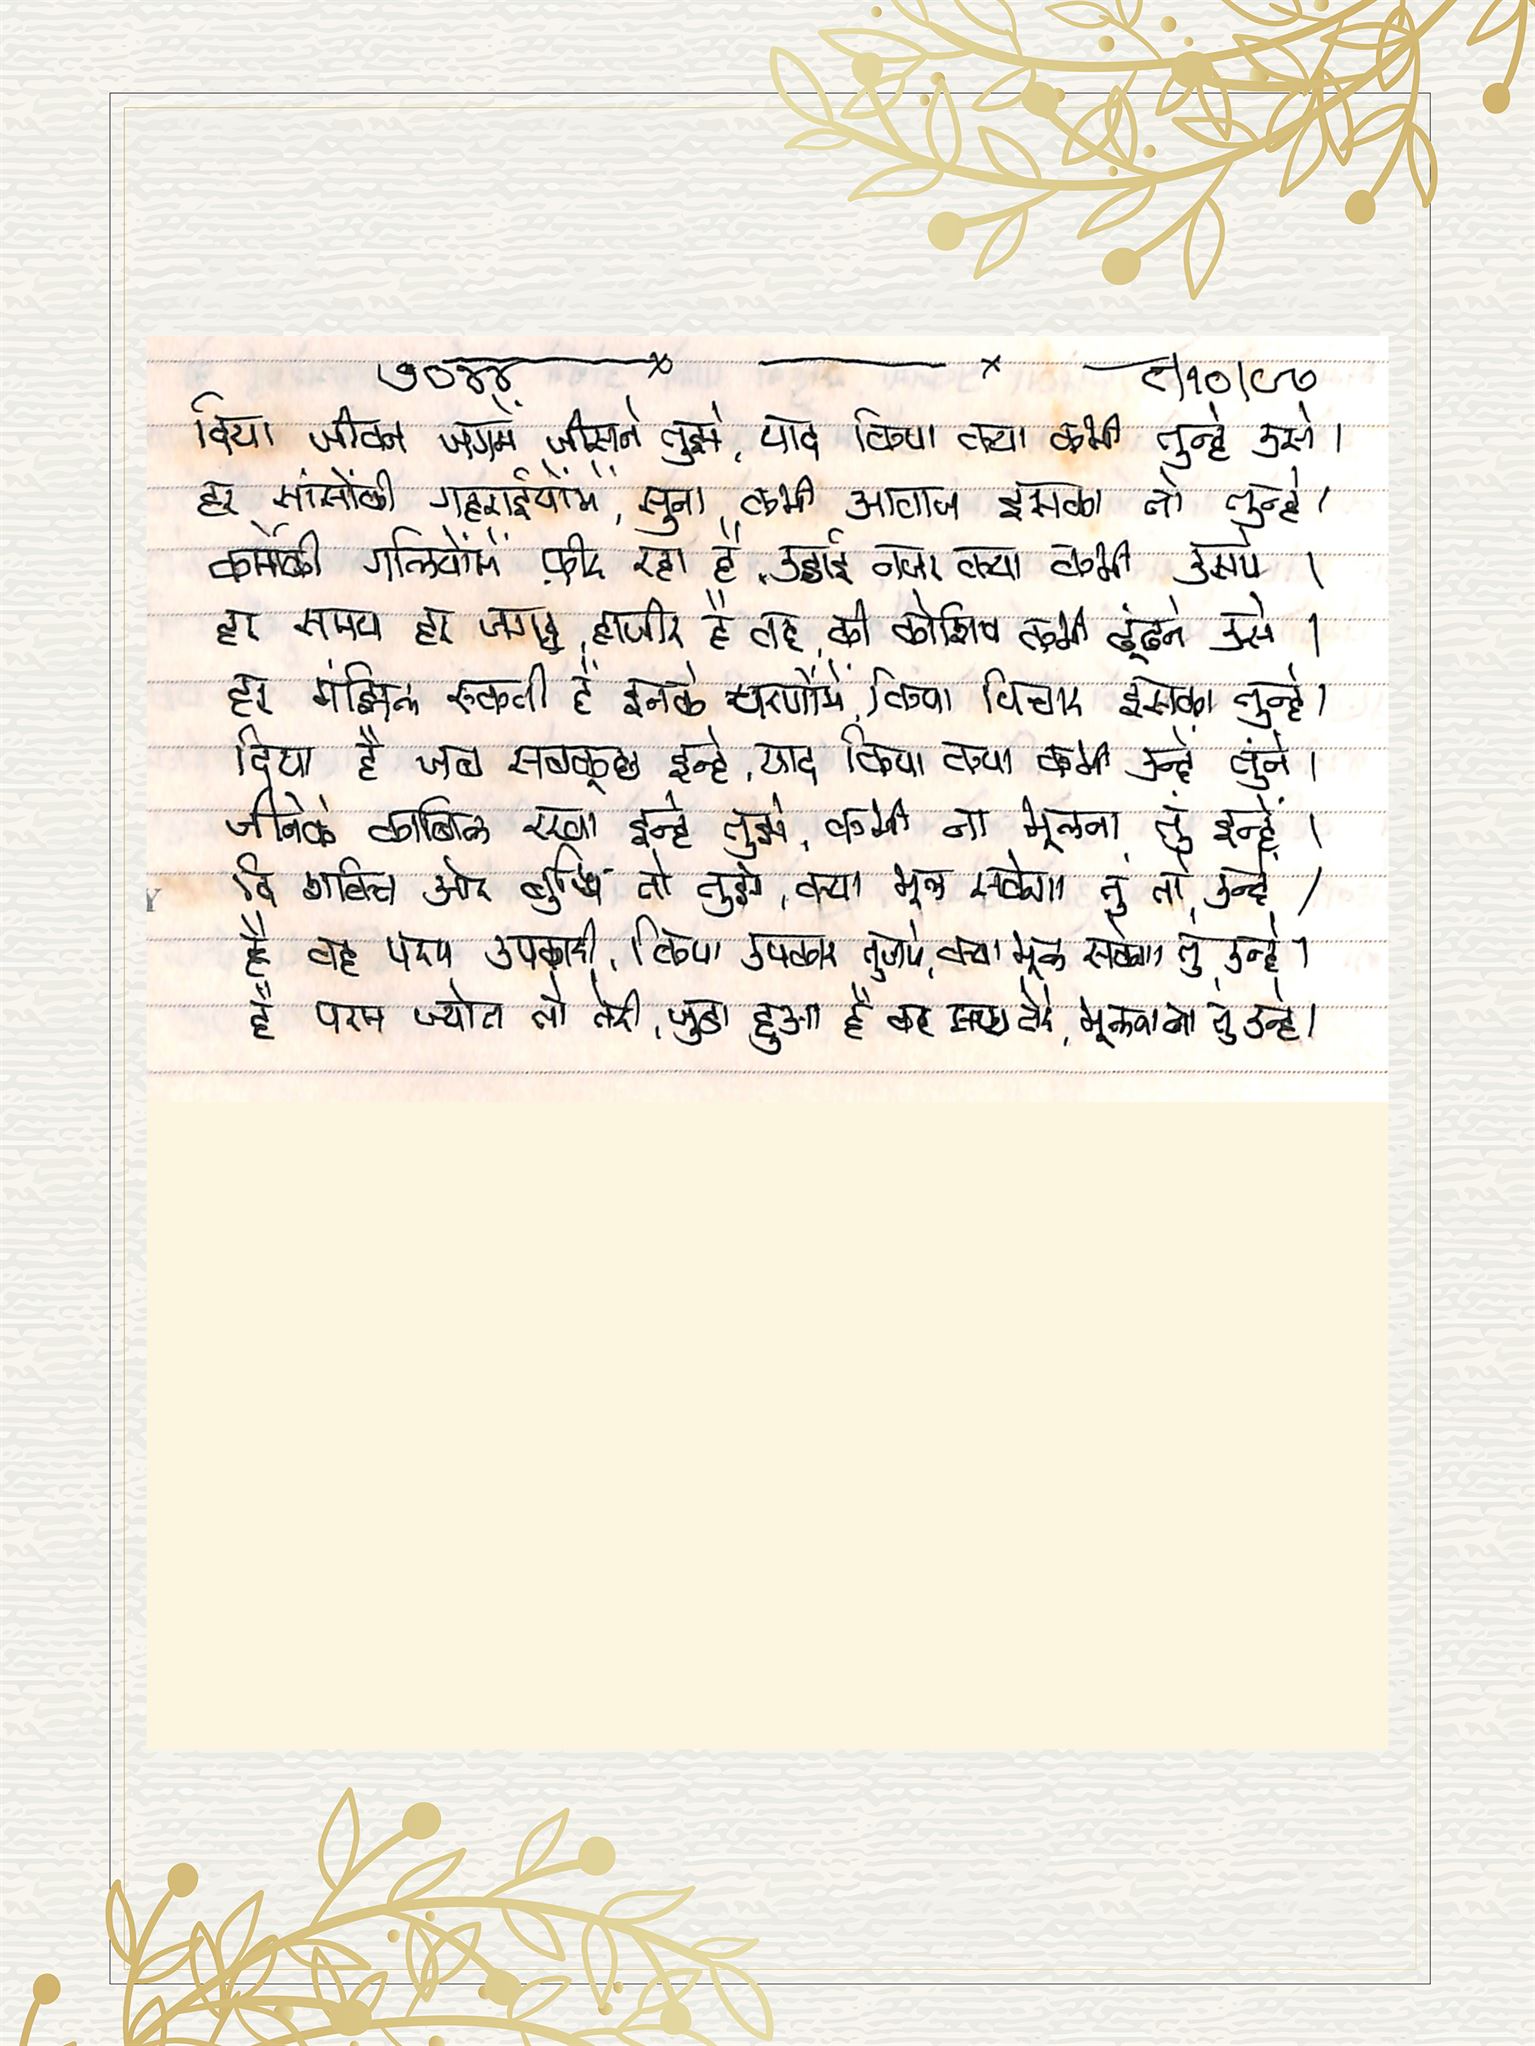 ७०४४ ८/१०/९७
दिया जीवन जगमें जीसने तुझे, याद किया क्या कभी तुन्हे उसे ।
हर सांसोंकी गहराईयोंमें, सुना कभी आवाज इसका तो तुन्हे ।
कर्मोकी गलियोंमें फीर रहा है, उठाई नजर क्या कभी उसपे ।
हर समय हर जगह, हाजीर है वह, की कोशिष कभी ढूंढने उसे ।
हर मंझिल रुकती है इनके चरणोंमें, किया विचार इसका तुन्हे ।
दिया है जब सबकूछ इन्हे, याद किया क्या कभी उन्हें तुंने ।
जीनेके काबिल रखा इन्हे तुझे, कभी ना भूलना तुं इन्हें ।
दि शक्ति और बुध्धि तो तुझे, क्या भूल सकेगा तुं तो उन्हें ।
है वह परम उपकारी, किया उपकार तुजपे, क्या भूल सकेगा तुं उन्हे ।
है परम ज्योत तो तेरी, जुडा हुआ है वह साथ तेरे, भूलना ना तुं उन्हे ।